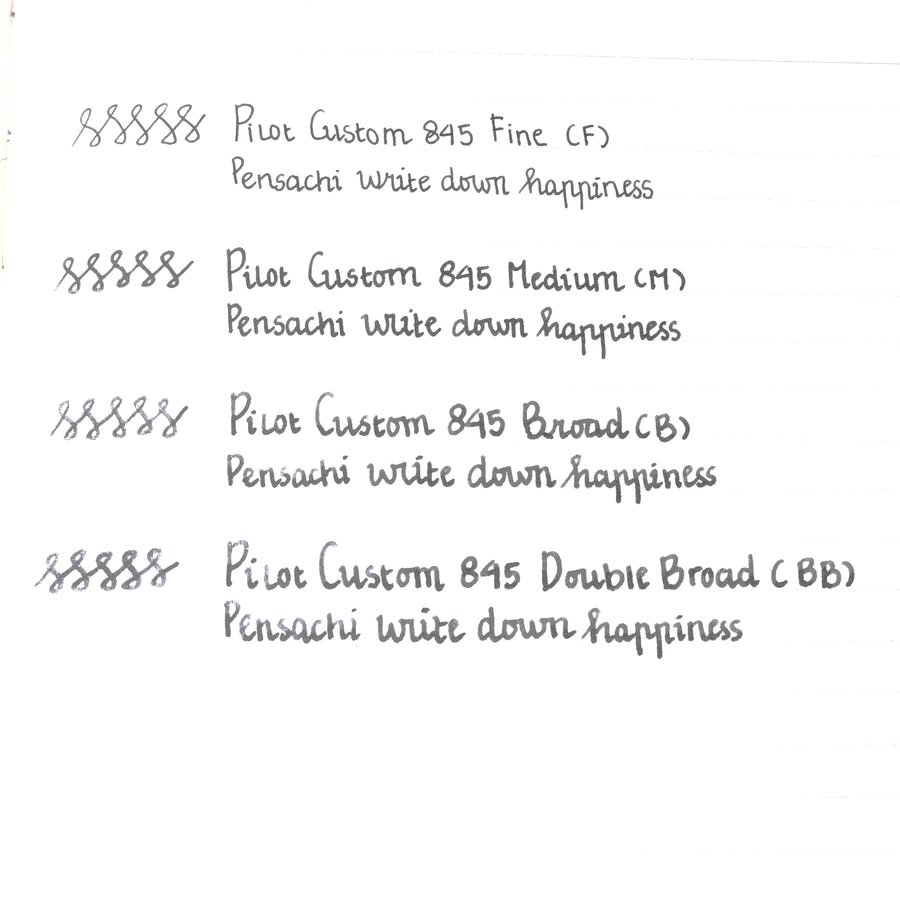 Pilot Custom 845 Fine (F)
Pensachi write down happiness
Pilot Custom 845 Medium (M)
Pensachi write down happiness
Pilot Custom 845 Broad (B)
Pensachi write down happiness
Pilot Custom 845 Double Broad (BB)
Pensachi write down happiness